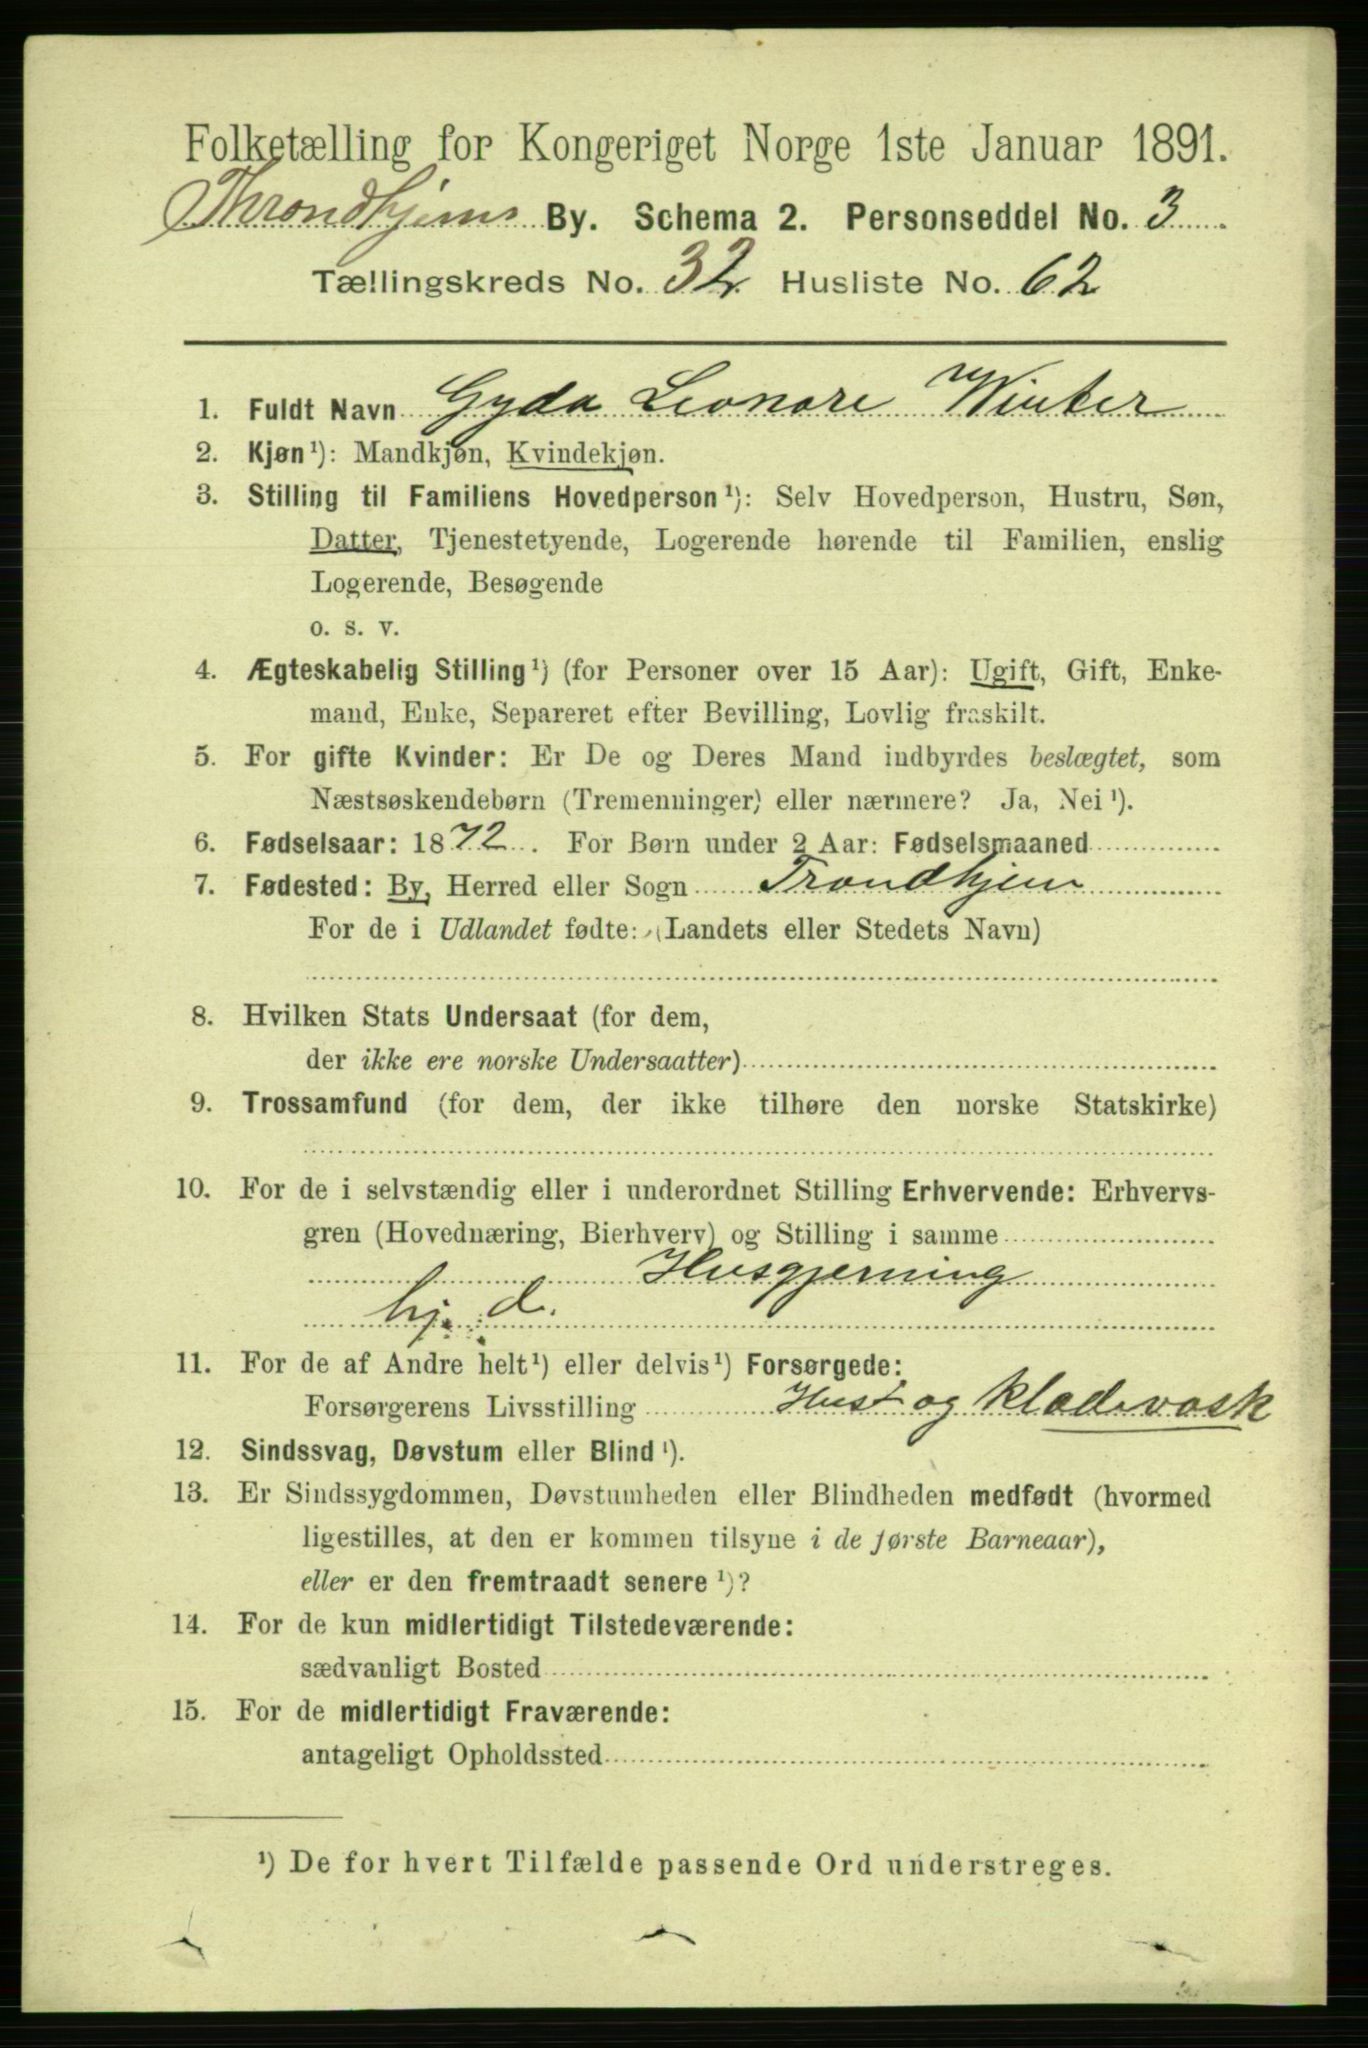 Folketælling for Kongeriget Norge 1ste Januar 1891.
Throndhjems By. Schema 2. Personseddel No. 3
Tællingskreds No. 32 Husliste No. 62
1. Fuldt Navn Gyda Leonore Winter
2. Kjøn¹): Mandkjøn, Kvindekjøn.
3. Stilling til Familiens Hovedperson¹): Selv Hovedperson, Hustru, Søn,
Datter, Tjenestetyende, Logerende hørende til Familien, enslig
Logerende, Besøgende
o. s. v.
4. Ægteskabelig Stilling¹) (for Personer over 15 Aar): Ugift, Gift, Enke-
mand, Enke, Separeret efter Bevilling, Lovlig fraskilt.
5. For gifte Kvinder: Er De og Deres Mand indbyrdes beslægtet, som
Næstsøskendebørn (Tremenninger) eller nærmere? Ja, Nei¹).
6. Fødselsaar: 1872. For Børn under 2 Aar: Fødselsmaaned
7. Fødested: By, Herred eller Sogn Trondhjem
For de i Udlandet fødte: (Landets eller Stedets Navn)
8. Hvilken Stats Undersaat (for dem,
der ikke ere norske Undersaatter)
9. Trossamfund (for dem, der ikke tilhøre den norske Statskirke)
10. For de i selvstændig eller i underordnet Stilling Erhvervende: Erhvervs-
gren (Hovednæring, Bierhverv) og Stilling i samme
Husgjerning
hj. d.
11. For de af Andre helt¹) eller delvis¹) Forsørgede:
Forsørgerens Livsstilling og Kladevask
12. Sindssvag, Døvstum eller Blind¹).
13. Er Sindssygdommen, Døvstumheden eller Blindheden medfødt (hvormed
ligestilles, at den er kommen tilsyne i de første Barneaar),
eller er den fremtraadt senere¹)?
14. For de kun midlertidigt Tilstedeværende:
sædvanligt Bosted
15. For de midlertidigt Fraværende:
antageligt Opholdssted
¹) De for hvert Tilfælde passende Ord understreges.